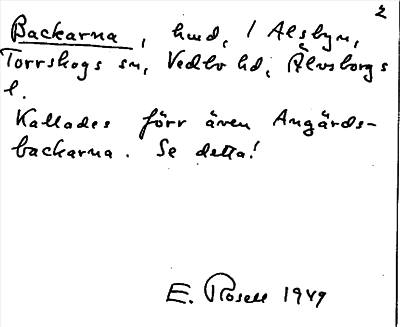 2
Backarna, hmd, / Alsbyn,
Torrskogs sn, Vedbo hd, Älvsborgs
l.
Kallades förr även Angärds-
backarna. Se detta!
E. Rosell 1949